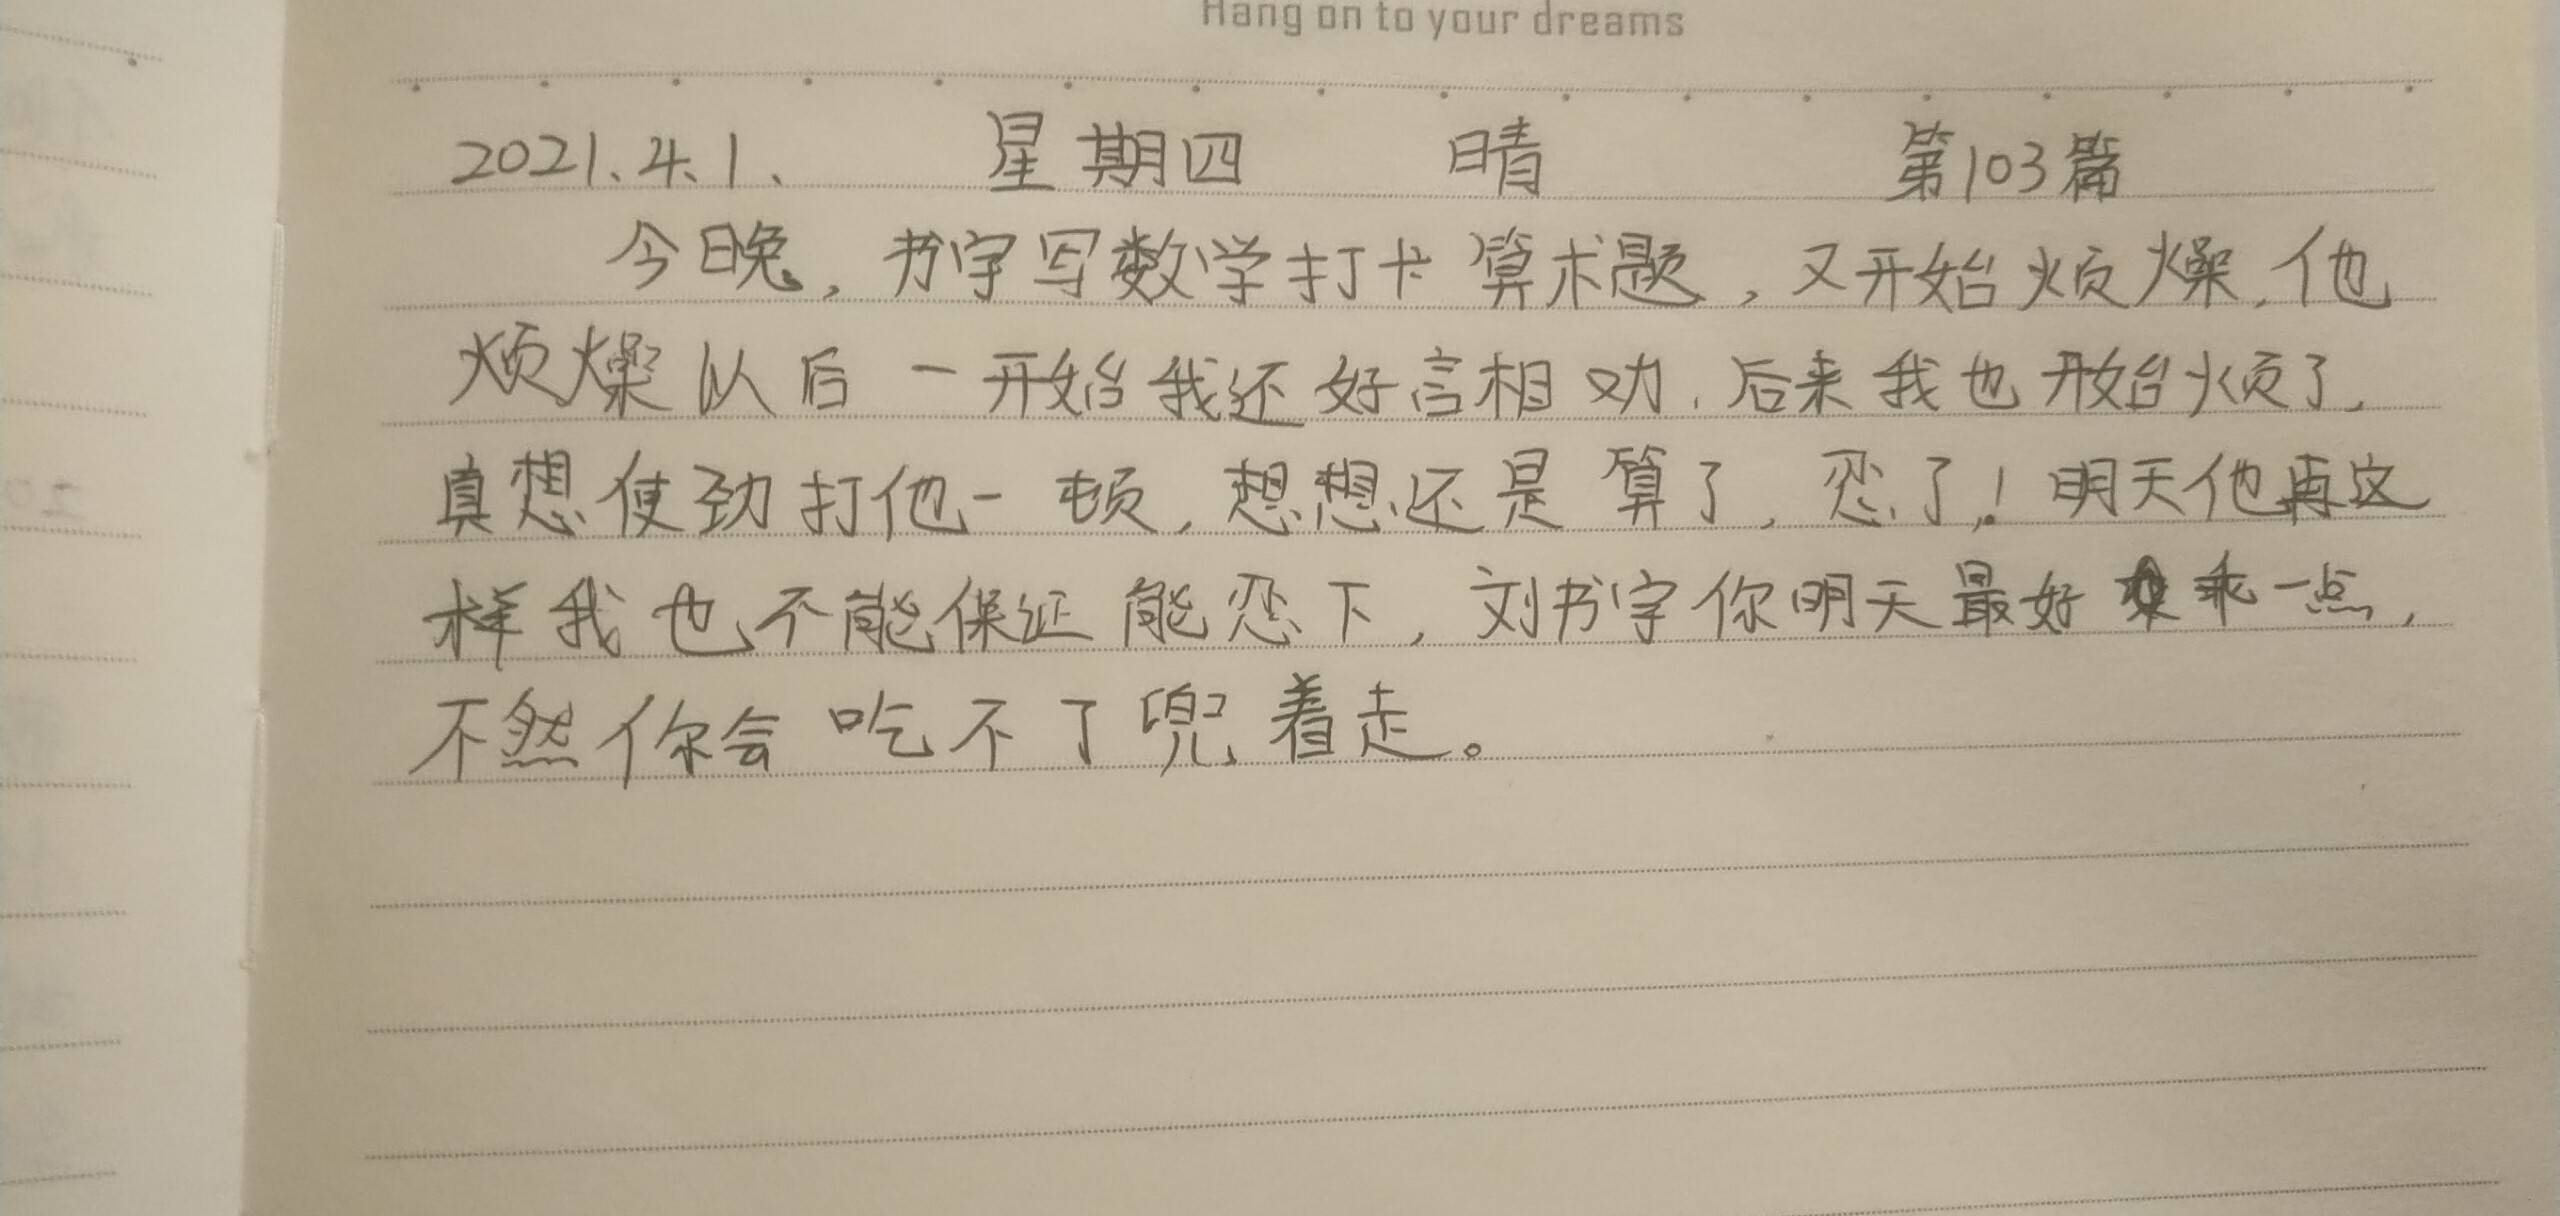 Hang on to your dreams
2021.4.1. 星期四 晴 第103篇
今晚，书宇写数学打卡算术题，又开始烦燥，他
烦燥以后一开始我还好言相劝，后来我也开始烦了，
真想使劲打他一顿，想想还是算了，忍了！明天他再这
样我也不能保证能忍下，刘书宇你明天最好乖一点，
不然你会吃不了兜着走。